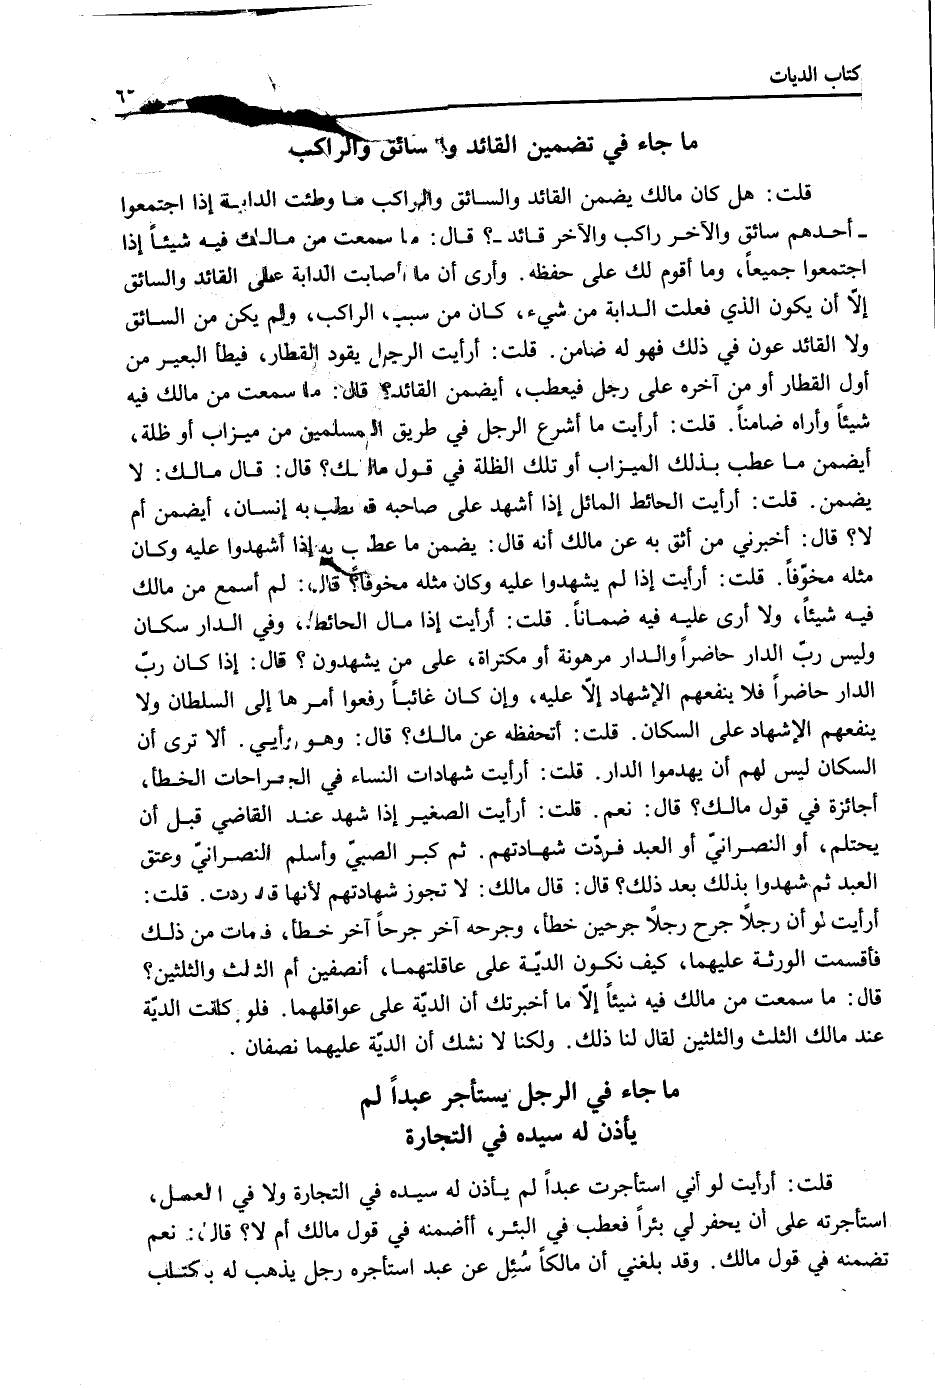 كتاب الديات
ما جاء في تضمين القائد والسائق والراكب
قلت: هل كان مالك يضمن القائد والسائق والراكب ما وطئت الدابة إذا اجتمعوا
ـ أحدهم سائق والآخر راكب والآخر قائد ـ؟ قال: ما سمعت من مالك فيه شيئاً إذا
اجتمعوا جميعاً، وما أقوم لك على حفظه. وأرى أن ما أصابت الدابة على القائد والسائق
إلّا أن يكون الذي فعلت الدابة من شيء، كان من سبب الراكب، ولم يكن من السائق
ولا القائد عون في ذلك فهو له ضامن. قلت: أرأيت الرجل يقود القطار، فيطأ البعير من
أول القطار أو من آخره على رجل فيعطب، أيضمن القائد؟ قال: ما سمعت من مالك فيه
شيئاً وأراه ضامناً. قلت: أرأيت ما أشرع الرجل في طريق المسلمين من ميزاب أو ظلة،
أيضمن ما عطب بذلك الميزاب أو تلك الظلة في قول مالك؟ قال: قال مالك: لا
يضمن. قلت: أرأيت الحائط المائل إذا أشهد على صاحبه فعطب به إنسان، أيضمن أم
لا؟ قال: أخبرني من أثق به عن مالك أنه قال: يضمن ما عطب به إذا أشهدوا عليه وكان
مثله مخوّفاً. قلت: أرأيت إذا لم يشهدوا عليه وكان مثله مخوفاً؟ قال: لم أسمع من مالك
فيه شيئاً، ولا أرى عليه فيه ضماناً. قلت: أرأيت إذا مال الحائط، وفي الدار سكان
وليس ربّ الدار حاضراً والدار مرهونة أو مكتراة، على من يشهدون؟ قال: إذا كان ربّ
الدار حاضراً فلا ينفعهم الإشهاد إلّا عليه، وإن كان غائباً رفعوا أمرها إلى السلطان ولا
ينفعهم الإشهاد على السكان. قلت: أتحفظه عن مالك؟ قال: وهو رأيي. ألا ترى أن
السكان ليس لهم أن يهدموا الدار. قلت: أرأيت شهادات النساء في الجراحات الخطأ،
أجائزة في قول مالك؟ قال: نعم. قلت: أرأيت الصغير إذا شهد عند القاضي قبل أن
يحتلم، أو النصرانيّ أو العبد فردّت شهادتهم. ثم كبر الصبيّ وأسلم النصرانيّ وعتق
العبد ثم شهدوا بذلك بعد ذلك؟ قال: قال مالك: لا تجوز شهادتهم لأنها قد ردت. قلت:
أرأيت لو أن رجلاً جرح رجلاً جرحين خطأ، وجرحه آخر جرحاً آخر خطأ، فمات من ذلك
فأقسمت الورثة عليهما، كيف تكون الديّة على عاقلتهما، أنصفين أم الثلث والثلثين؟
قال: ما سمعت من مالك فيه شيئاً إلّا ما أخبرتك أن الديّة على عواقلهما. فلو كانت الديّة
عند مالك الثلث والثلثين لقال لنا ذلك. ولكنا لا نشك أن الديّة عليهما نصفان.
ما جاء في الرجل يستأجر عبداً لم
يأذن له سيده في التجارة
قلت: أرأيت لو أني استأجرت عبداً لم يأذن له سيده في التجارة ولا في العمل،
استأجرته على أن يحفر لي بئراً فعطب في البئر، أأضمنه في قول مالك أم لا؟ قال: نعم
تضمنه في قول مالك. وقد بلغني أن مالكاً سُئِل عن عبد استأجره رجل يذهب له بكتاب